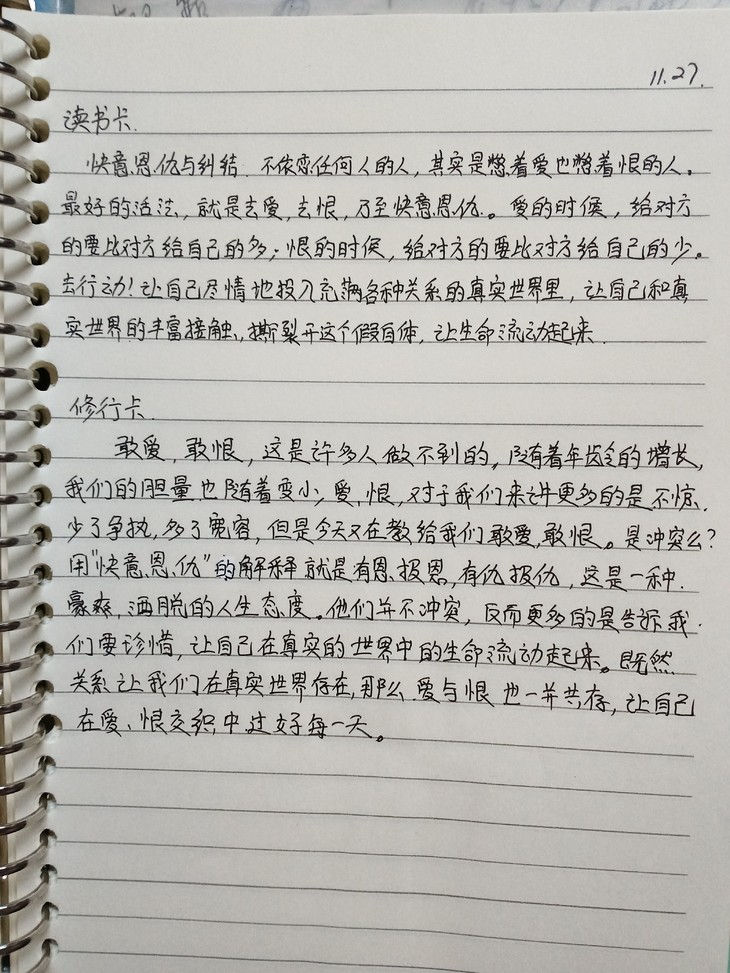 11.27.
读书卡.
快意恩仇与纠结. 不依恋任何人的人，其实是憋着爱也憋着恨的人。
最好的活法，就是去爱，去恨，乃至快意恩仇。爱的时候，给对方
的要比对方给自己的多；恨的时候，给对方的要比对方给自己的少。
去行动！让自己尽情地投入充满各种关系的真实世界里，让自己和真
实世界的丰富接触，撕裂开这个假自体，让生命流动起来.
修行卡.
敢爱，敢恨，这是许多人做不到的。随着年龄的增长，
我们的胆量也随着变小，爱、恨，对于我们来讲更多的是不惊.
少了争执，多了宽容，但是今天又在教给我们敢爱，敢恨。是冲突么？
用“快意恩仇”的解释就是有恩报恩，有仇报仇，这是一种.
豪爽，洒脱的人生态度。他们并不冲突，反而更多的是告诉我.
们要珍惜，让自己在真实的世界中的生命流动起来。既然
关系让我们在真实世界存在，那么爱与恨也一并共存，让自己
在爱、恨交织中过好每一天。